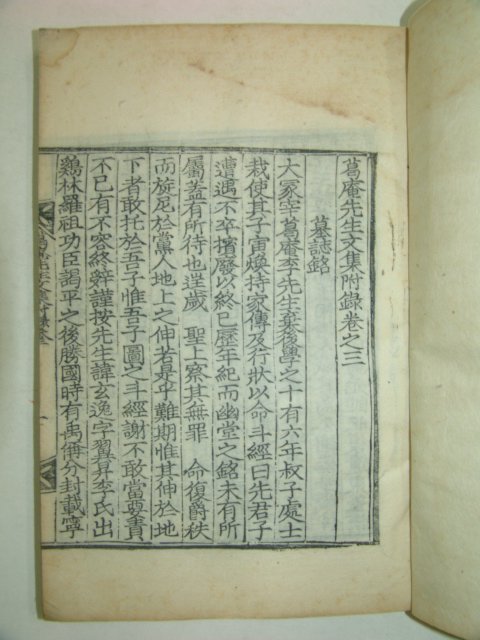 葛庵先生文集附錄卷之三
墓誌銘
大冢宰葛庵李先生棄後學之十有六年叔子處士
栽使其子寅煥持家傳及行狀以命斗經曰先君子
遭遇不卒擯廢以終已歷年紀而幽堂之銘未有所
屬蓋有所待也逞歲 聖上察其無罪 命復爵秩
而旋尼於黨人地上之伸若是乎難期惟其伸於地
下者敢托於吾子惟吾子圖之斗經謝不敢當要責
不已有不容終辭謹按先生諱玄逸字翼昇李氏出
鷄林羅祖功臣謁平之後勝國時有禹偁分封載寧